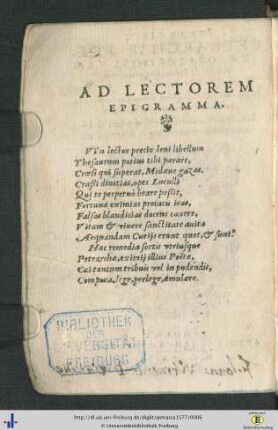 AD LECTOREM
EPIGRAMMA.
Vtn lector precio leni libellum
Thesaurum potius tibi parare,
Crœsi qui superat, Midæue gazas,
Crassi diuitias, opes Luculli
Qui te perpetuò beare possit,
Fortunæ eximias procacis iras,
Falsas blandicias docens cauere,
Vitam & viuere sanctitate auita
Aequandam Curijs erunt quot, & sunt?
Hæc remedia sortis vtriusque
Petrarchæ, eximij illius Poëtæ,
Cui tantum tribuit vel impendit,
Compara, lege, perlege, æmulare.
BIBLIOTHEK
DER
UNIVERSITÄT
FREIBURG
http://dl.ub.uni-freiburg.de/diglit/petrarca1577/0006
© Universitätsbibliothek Freiburg